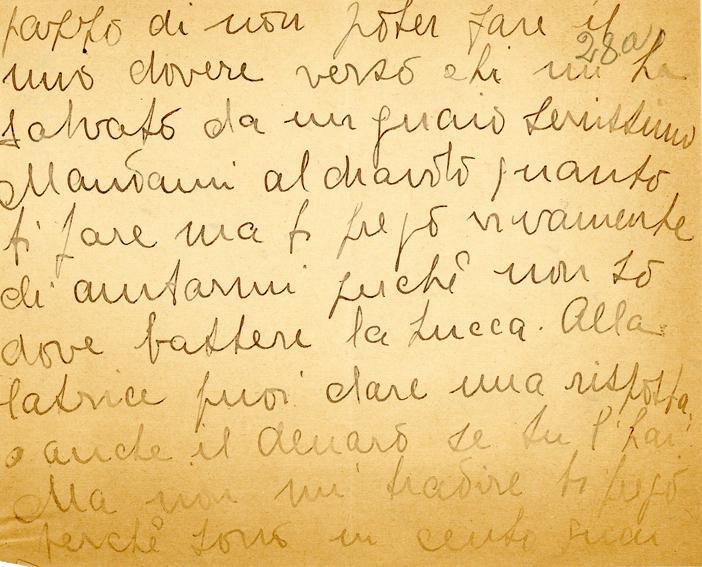 pazzo di non poter fare il
28a
mio dovere verso chi mi ha
salvato da un guaio serissimo
Mandami al diavolo quanto
ti fare ma ti prego vivamente
di aiutarmi perchè non so
dove battere la zucca. Alla
latrice puoi dare una risposta,
o anche il denaro se tu l'hai
Ma non mi tradire ti prego
perchè sono in cento guai